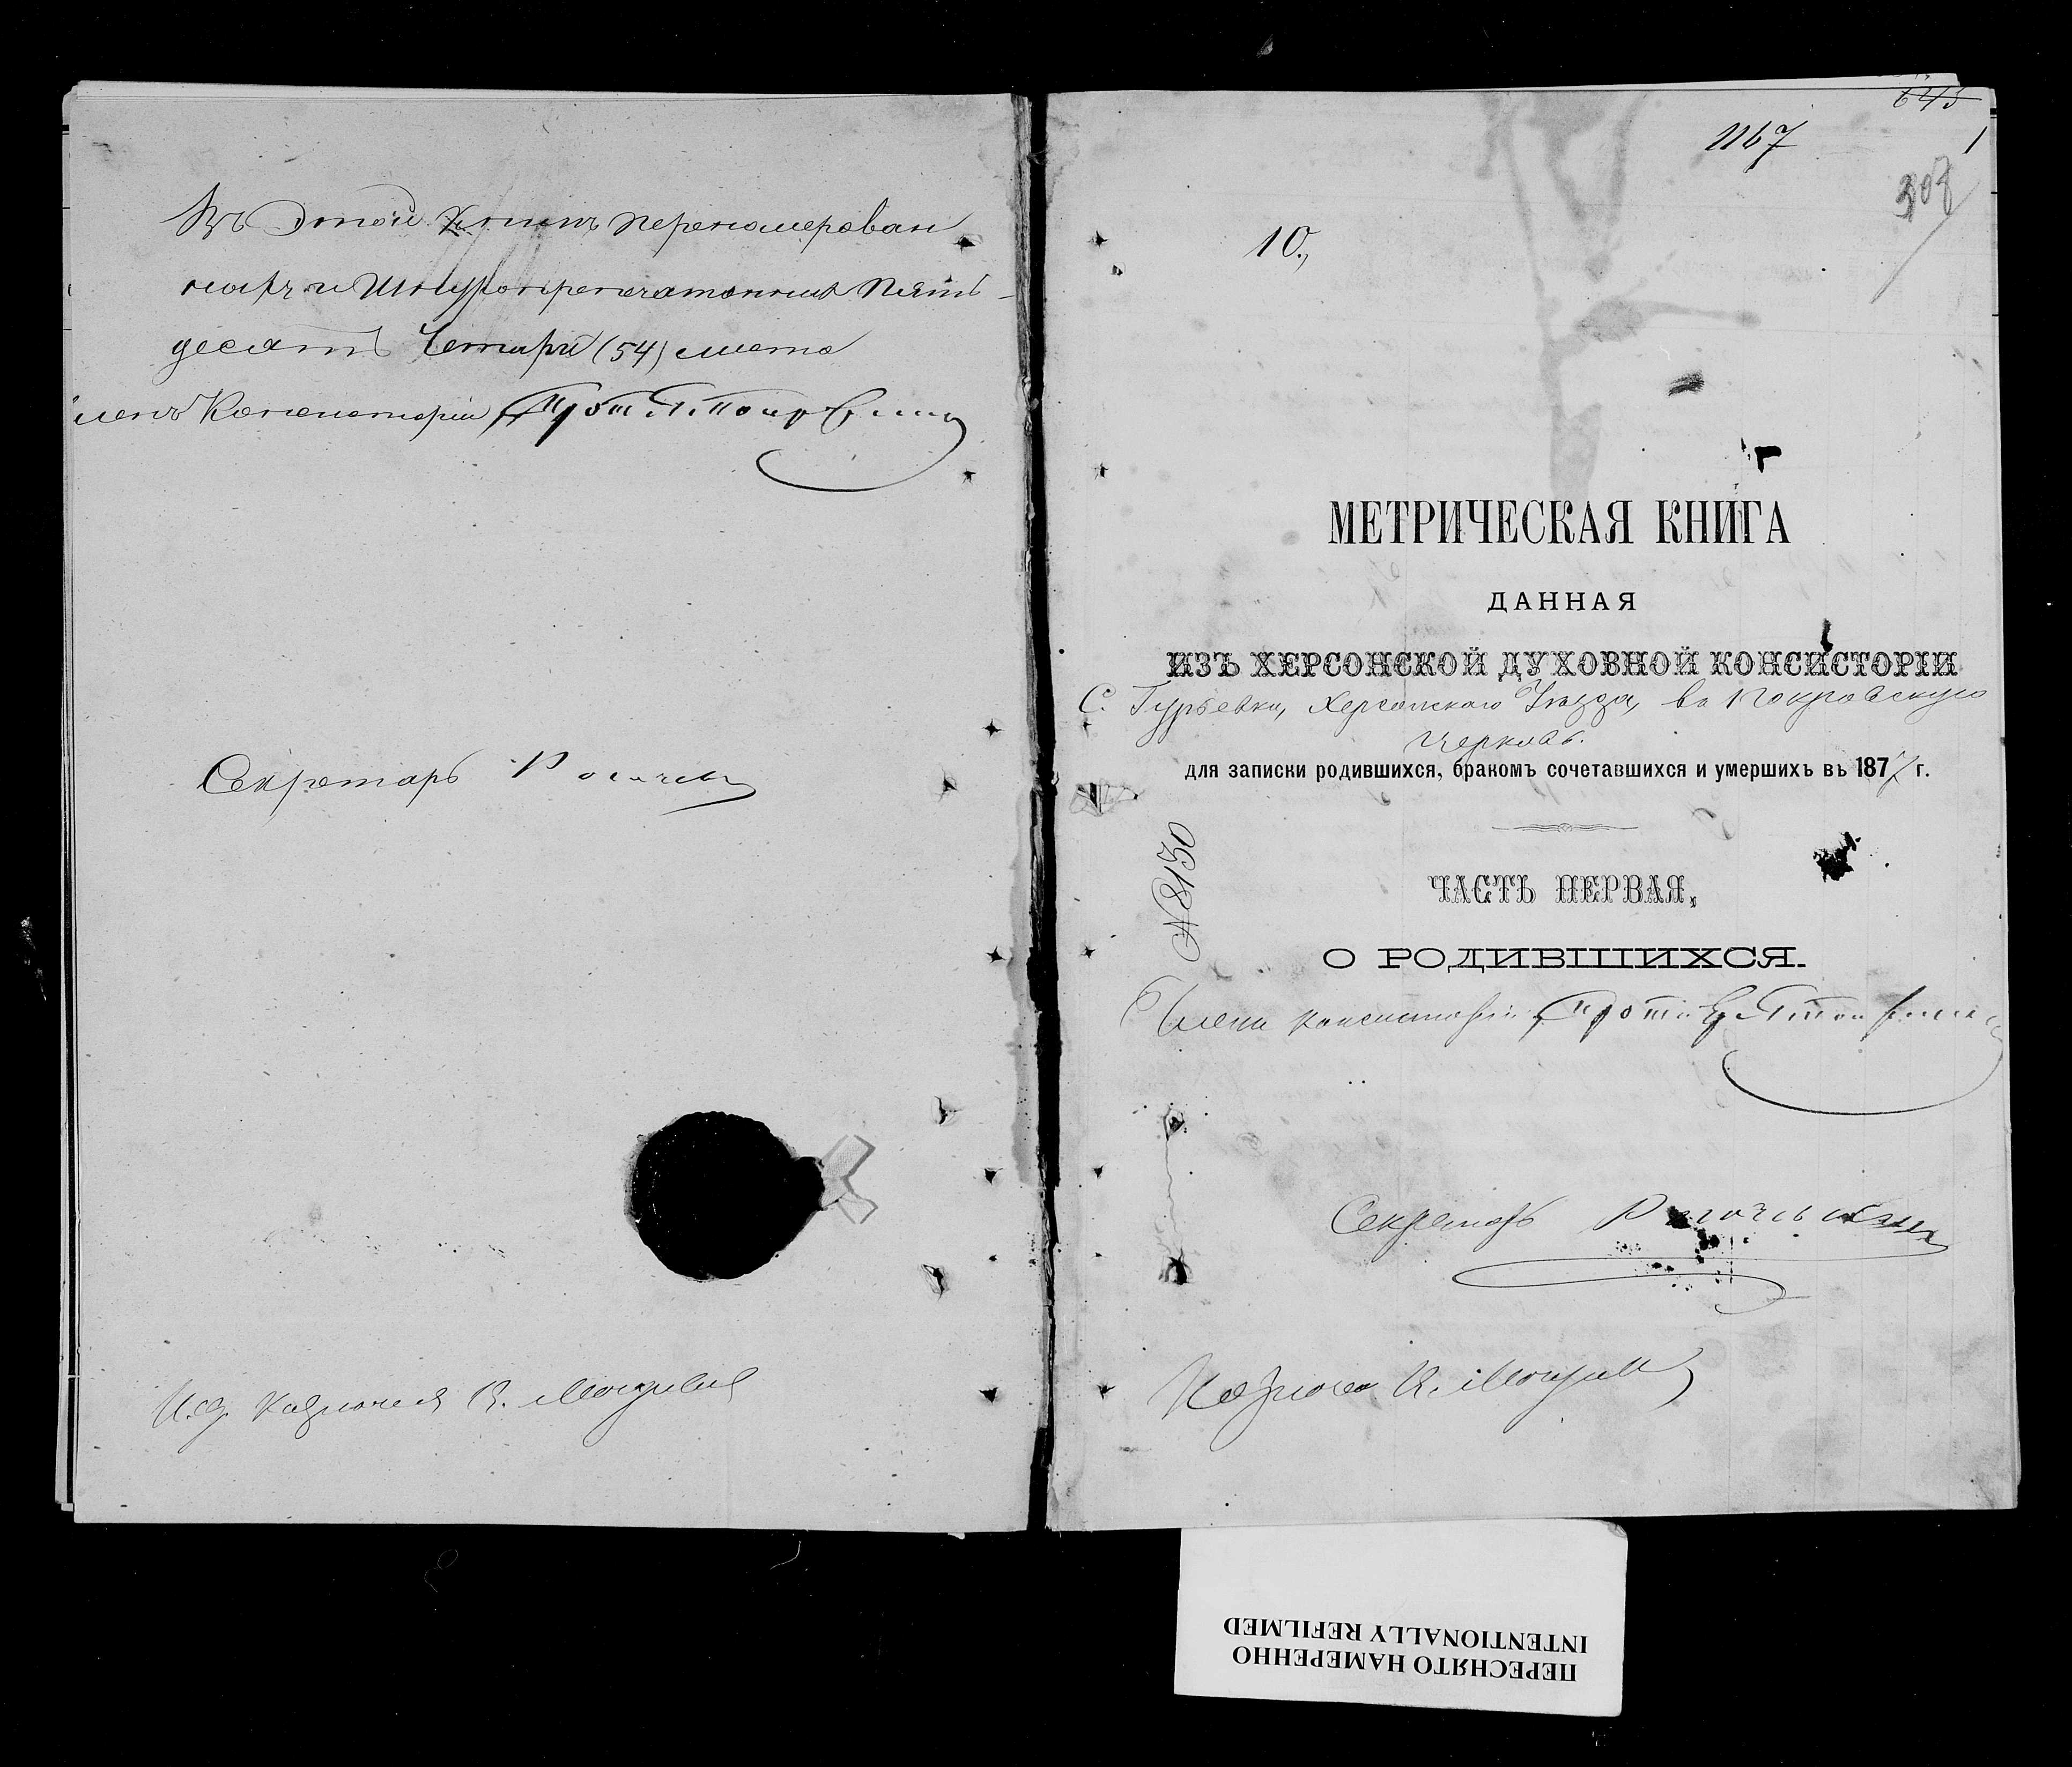 Въ этой Книгѣ перенумерован
ныхъ и Шнуропрепечатанныхъ Пять-
десять Четыри (54) листа
Членъ Консисторіи Прот.
Секретарь
И. д. Казначея В.
645
1167
1
308
10.,
МЕТРИЧЕСКАЯ КНИГА
ДАННАЯ
ИЗЪ ХЕРСОНСКОЙ ДУХОВНОЙ КОНСИСТОРІИ
С. Гурьевки, Херсонскаго Уѣзда, въ Покровскую
Церковь.
для записки родившихся, бракомъ сочетавшихся и умершихъ въ 1877 г.
№ 8130
ЧАСТЬ ПЕРВАЯ,
О РОДИВШИХСЯ.
Членъ Консисторіи Прот.
Секретарь
Казначей В.
ПЕРЕСНЯТО НАМЕРЕННО
INTENTIONALLY REFILMED